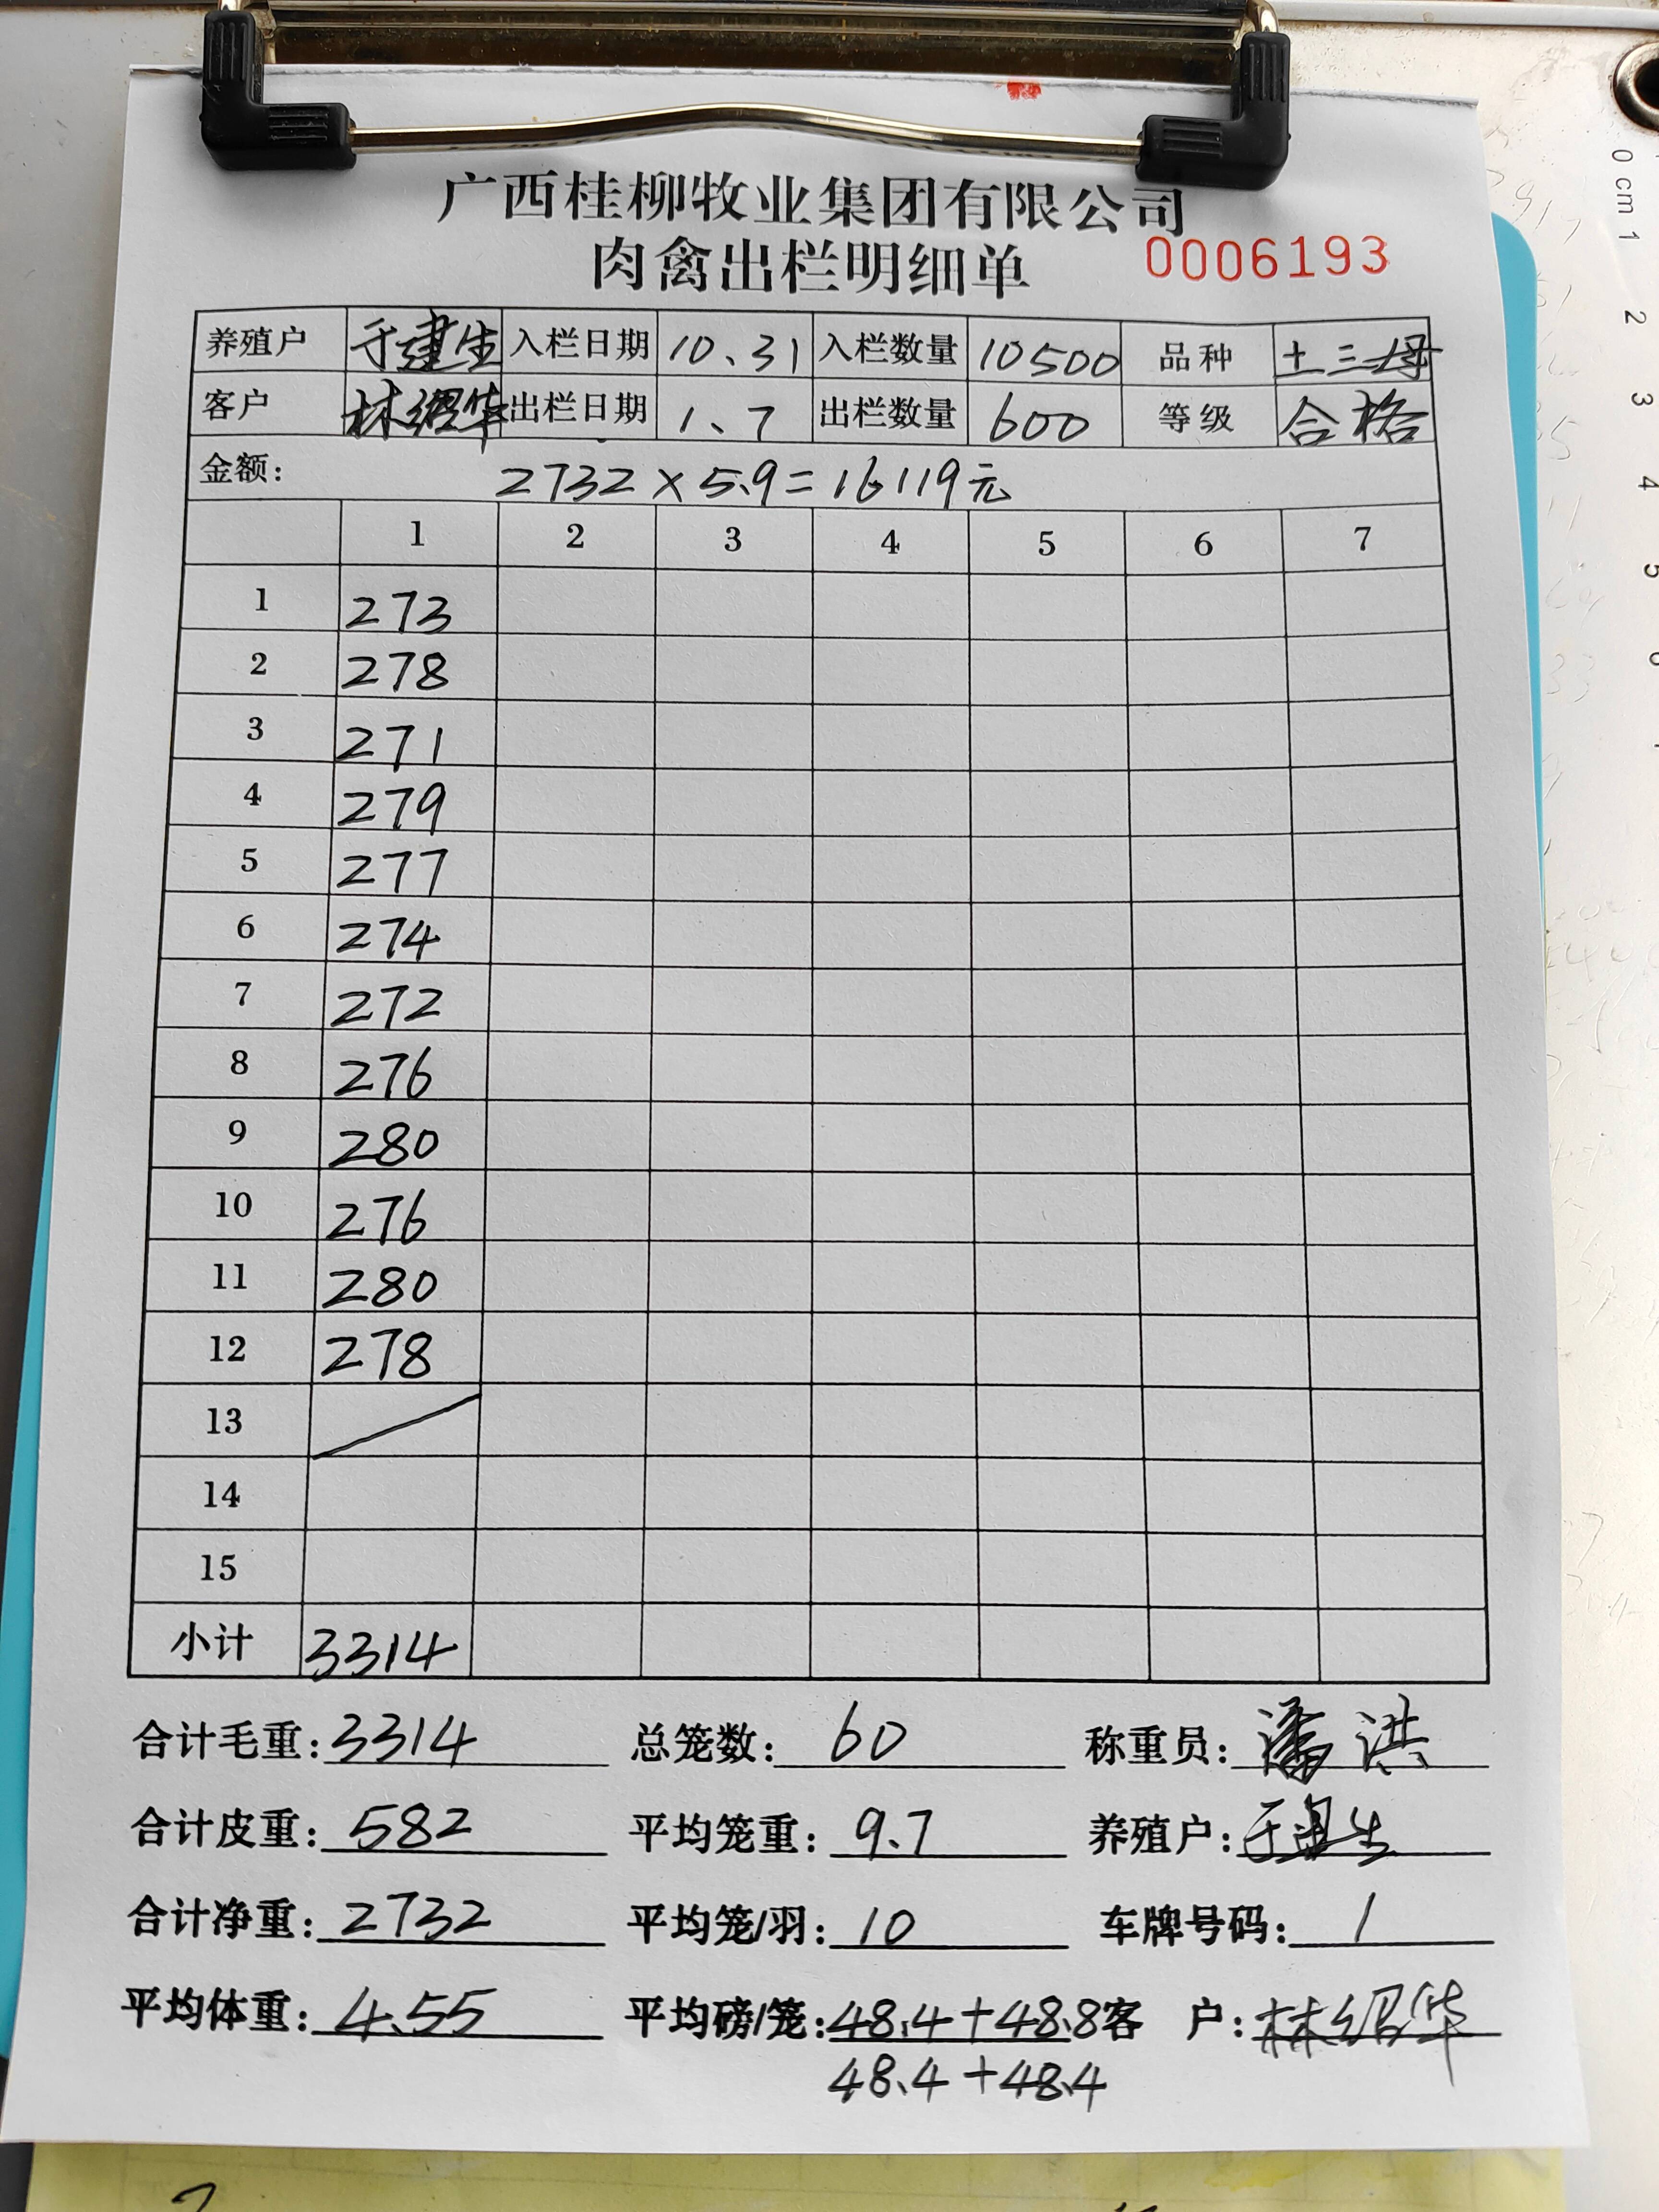 广西桂柳牧业集团有限公司
肉禽出栏明细单 0006193
养殖户 于建生 入栏日期 10、31 入栏数量 10500 品种 土三母
客户 林绍华 出栏日期 1、7 出栏数量 600 等级 合格
金额: 2732×5.9=16119元
1 2 3 4 5 6 7
1 273
2 278
3 271
4 279
5 277
6 274
7 272
8 276
9 280
10 276
11 280
12 278
13
14
15
小计 3314
合计毛重: 3314 总笼数: 60 称重员: 潘洪
合计皮重: 582 平均笼重: 9.7 养殖户: 于建生
合计净重: 2732 平均笼/羽: 10 车牌号码: 1
平均体重: 4.55 平均磅/笼: 48.4+48.8 客 户: 林绍华
48.4+48.4
0 cm 1
2
3
4
5